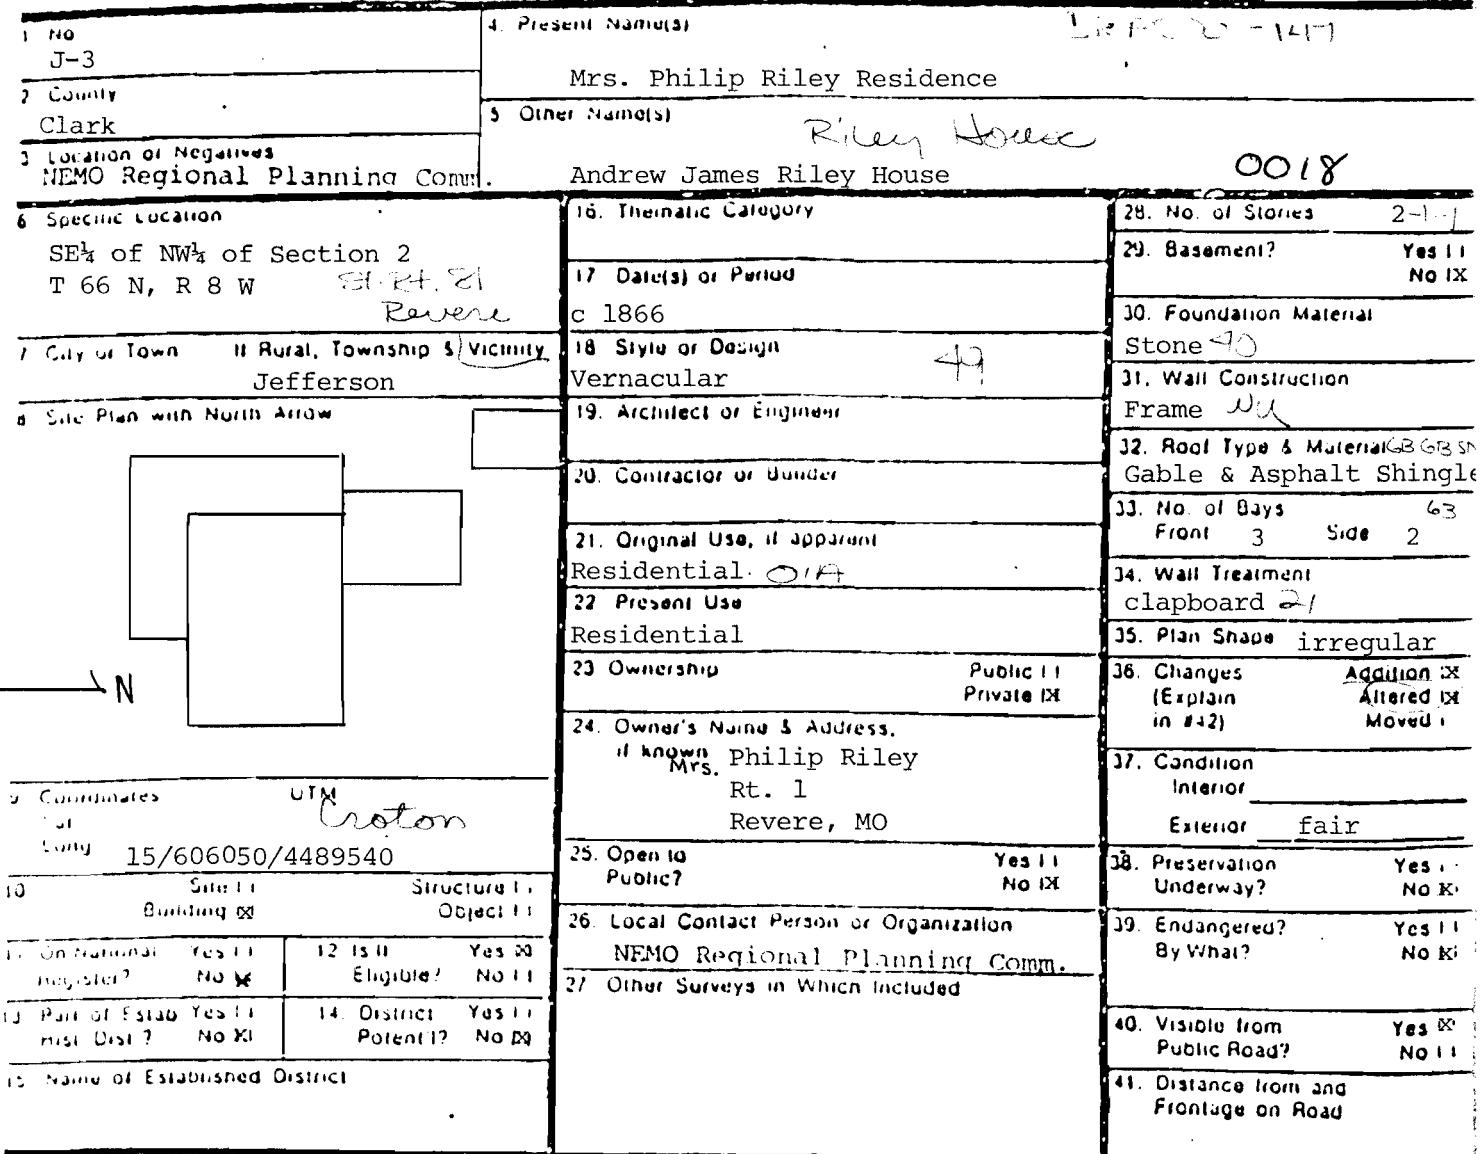 1 No
J-3
2 County
Clark
3 Location of Negatives
NEMO Regional Planning Comm.
4. Present Name(s)
Mrs. Philip Riley Residence
5 Other Name(s)
Riley House
Andrew James Riley House
0018
6 Specific Location
SE¼ of NW¼ of Section 2
T 66 N, R 8 W
St. Rt. 81
Revere
7 City or Town If Rural, Township & Vicinity
Jefferson
8 Site Plan with North Arrow
N
9 Coordinates UTM
Lat
Long
Croton
15/606050/4489540
10 Site [ ] Structure [ ]
Building [X] Object [ ]
11 On National Register? Yes [ ] No [X]
12 Is It Eligible? Yes [X] No [ ]
13 Part of Estab Hist. Dist.? Yes [ ] No [X]
14. District Potent'l? Yes [ ] No [X]
15 Name of Established District
16. Thematic Category
17 Date(s) or Period
c 1866
18 Style or Design
Vernacular 49
19. Architect or Engineer
20. Contractor or Builder
21. Original Use, if apparent
Residential 01A
22 Present Use
Residential
23 Ownership Public [ ]
Private [X]
24. Owner's Name & Address,
if known
Mrs. Philip Riley
Rt. 1
Revere, MO
25. Open to Yes [ ]
Public? No [X]
26. Local Contact Person or Organization
NEMO Regional Planning Comm.
27 Other Surveys in Which Included
28. No. of Stories
29. Basement? Yes [ ]
No [X]
30. Foundation Material
Stone 40
31. Wall Construction
Frame
32. Roof Type & Material GB GB
Gable & Asphalt Shingle
33. No. of Bays 63
Front 3 Side 2
34. Wall Treatment
clapboard 21
35. Plan Shape irregular
36. Changes Addition [X]
(Explain Altered [X]
in #42) Moved [ ]
37. Condition
Interior
Exterior fair
38. Preservation Yes [ ]
Underway? No [X]
39. Endangered? Yes [ ]
By What? No [X]
40. Visible from Yes [X]
Public Road? No [ ]
41. Distance from and
Frontage on Road